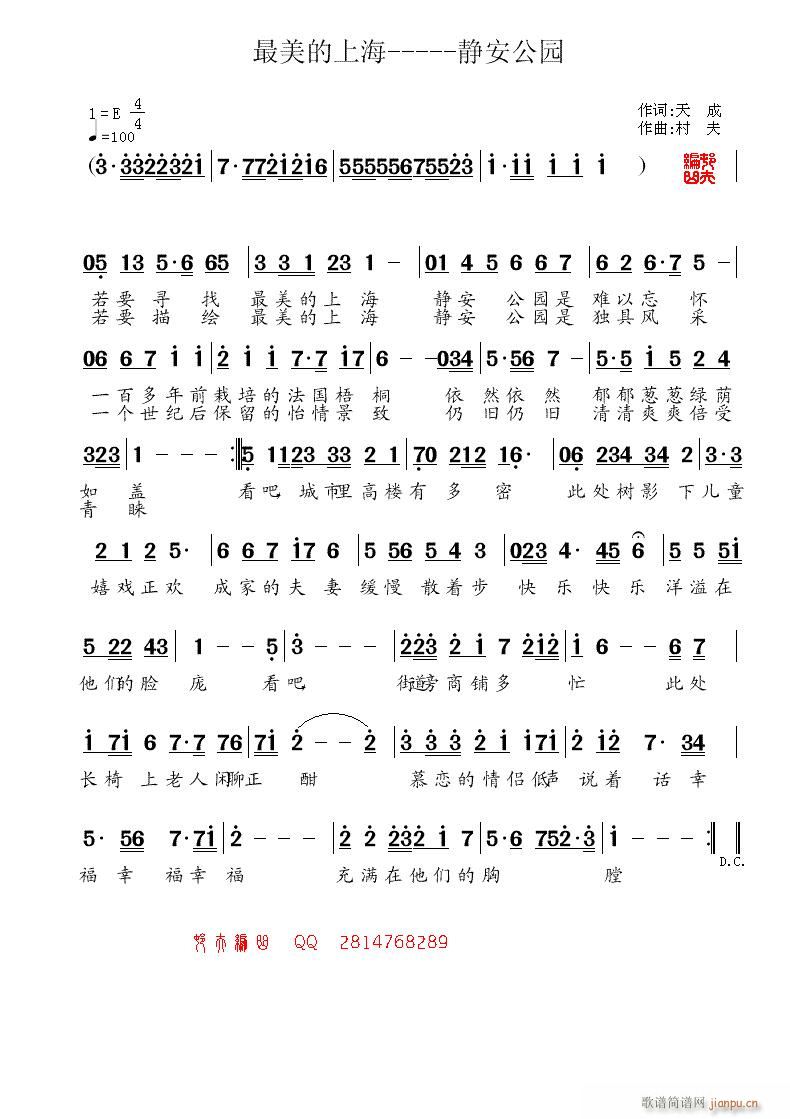 最美的上海-----静安公园
1=E 4/4
♩=100
作词:天 成
作曲:村 夫
(3·3322321 7·7721216 55555675523 1·11 1 1 1 )
05 13 5·6 65 3 3 1 23 1 - 01 4 5 6 6 7 6 2 6·7 5 -
若要 寻 找 最美的上 海 静安 公园是 难以忘 怀
若要 描 绘 最美的上 海 静安 公园是 独具风 采
06 6 7 1 1 2 1 1 7·7 17 6 - - 034 5·56 7 - 5·5 1 5 2 4
一百多年前栽培的法国梧 桐 依 然依 然 郁郁葱葱绿荫
一个世纪后保留的怡情景 致 仍 旧仍 旧 清清爽爽倍受
323 1 - - - 5 1123 33 2 1 70 212 16· 06 234 34 2 3·3
如 盖 看吧 城市里高楼有 多 密 此处树影 下儿童
青 睐
2 1 2 5· 6 6 7 17 5 5 56 5 4 3 023 4· 45 6 5 5 51
嬉戏正欢 成家的夫 妻 缓慢 散着步 快乐 快乐 洋溢在
5 22 43 1 - - 5 3 - - 223 2 1 7 212 1 6 - - 6 7
他们的脸 庞 看吧 街道旁商铺多 忙 此处
1 71 6 7·7 76 71 2 - - 2 3 3 3 2 1 171 2 12 7· 34
长椅 上老人闲聊正 酣 慕恋的情侣低声 说着 话幸
5· 56 7·71 2 - - - 2 2 232 1 7 5·6 752·3 1 - - -
D.C.
福 幸 福幸 福 充满在他们的胸 膛
QQ 2814768289
歌谱简谱网 jianpu.cn